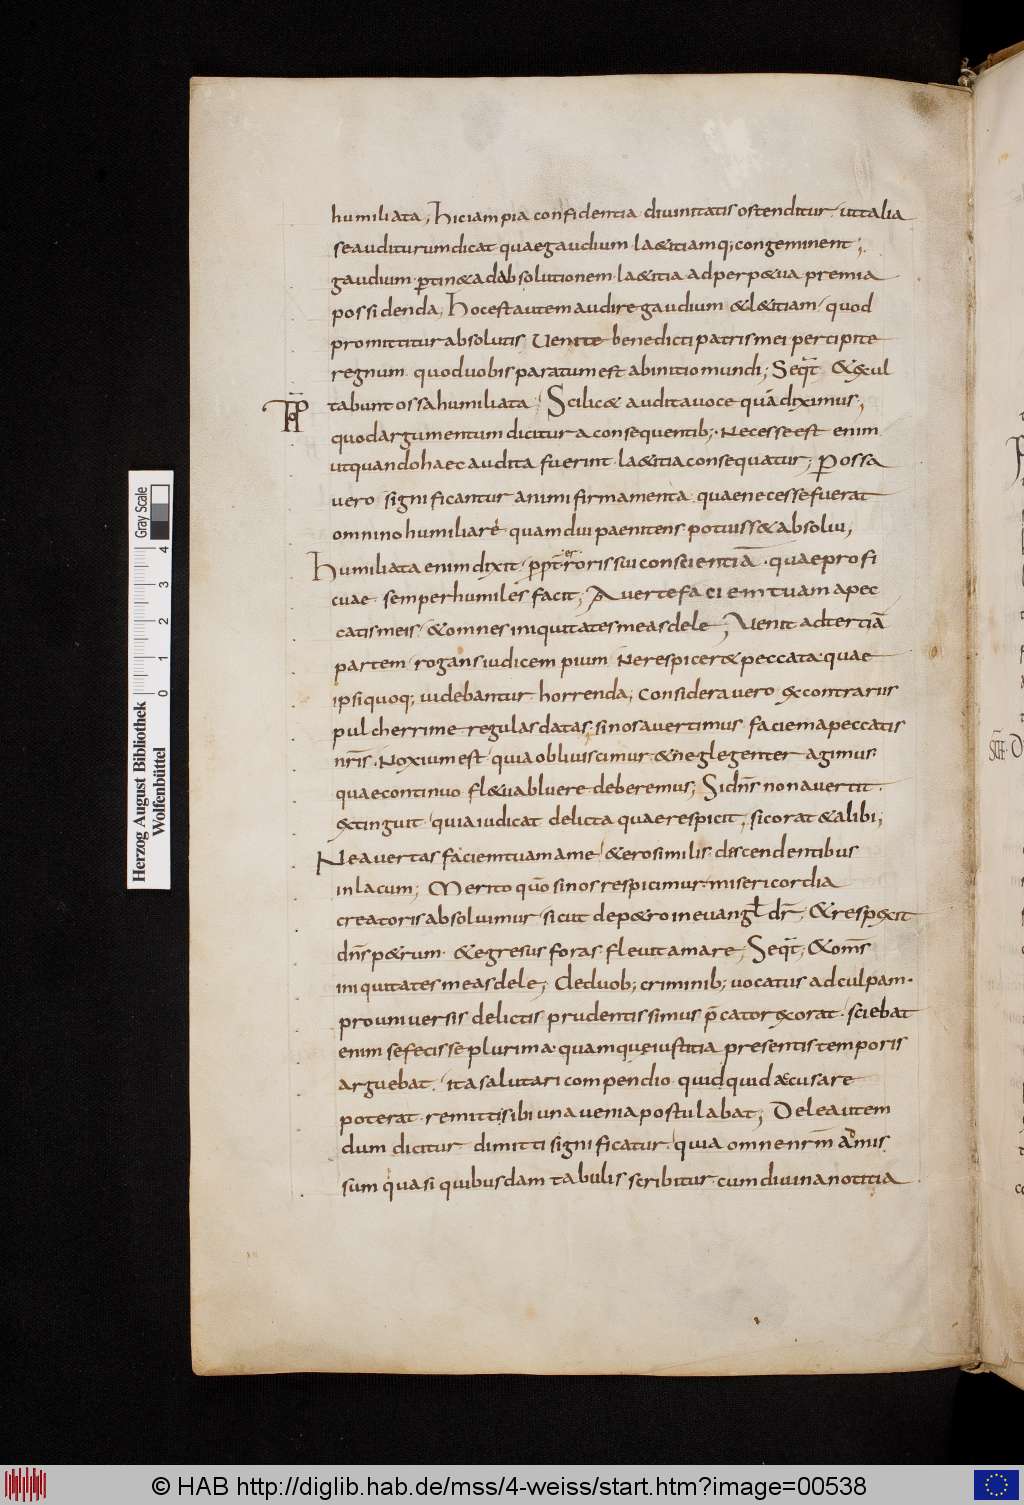 humiliata; Hic iam pia confidentia divinitatis ostenditur. ut talia
se auditurum dicat quae gaudium l&aelig;titiamq; congeminent;
gaudium p̱tin& ad absolutionem. la&itia ad perp&ua premia
possidenda; Hoc est autem audire gaudium & l&itiam. quod
promittitur absolutis. Venite benedicti patris mei percipite
regnum. quod uobis paratum est ab initio mundi; Seqt̄ &exul
tabunt ossa humiliata; Scilic& audita uoce quā diximus;
quod argumentum dicitur a consequentib;. Necesse est enim
ut quando haec audita fuerint. la&itia consequatur; P ossa
vero significantur animi firmamenta. quae necesse fuerat
omnino humiliare quamdiu paenitens potuiss& absolvi;
Humiliata enim dixit. ꝓpt̄ erroris sui conscientiā. quae profi
cuae semper humiles facit; Averte faciem tuam a pec
catis meis. & omnes iniquitates meas dele; Venit ad tertiā
partem. rogans iudicem pium. Ne respicer& peccata. quae
ipsi quoq; uidebantur horrenda; Considera vero ex contrariis
pulcherrime regulas datas. si nos avertimus faciem a peccatis
nr̄is. Noxium est. quia obliuiscimur & neglegenter agimus.
quae continuo fl&u abluere deberemus; Si dn̄s non avertit.
extinguit. quia iudicat delicta quae respicit; sic orat & alibi;
Ne avertas faciem tuam a me. & ero similis. descendentibus
in lacum; Merito quō si nos respicimur. misericordia
creatoris absoluimur. sicut de p&ro in euangl̄ dr̄; & respexit
dn̄s p&rum. & egresus foras. flevit amare; Seqt̄; & om̄s
iniquitates meas dele; De duob; criminib; uocatus ad culpam.
pro universis delictis. prudentissimus p̄cator exorat. sciebat
enim se fecisse plurima. quamque iustitia presentis temporis
arguebat. ita salutari compendio. quidquid accusare
poterat. remitti sibi una venia postulabat; Dele autem
dum dicitur dimitti significatur. quia omne nr̄m amis
sum quasi quibusdam tabulis scribitur. cum divina notitia
Herzog August Bibliothek
Wolfenbüttel
0 1 2 3 4
Gray Scale
© HAB http://diglib.hab.de/mss/4-weiss/start.htm?image=00538